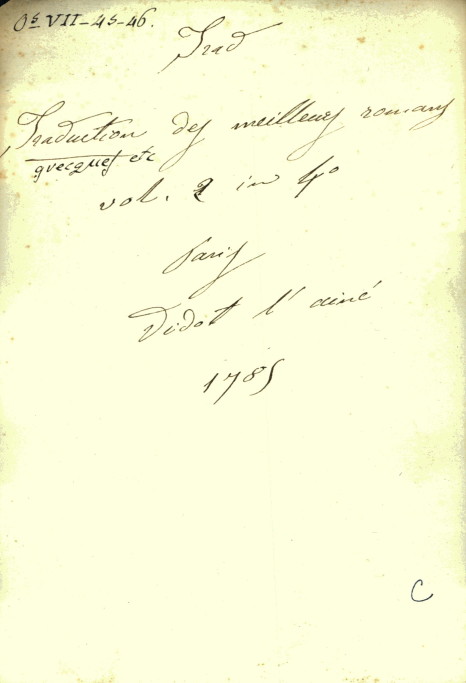 Os VII-45-46.
Trad
Traduction des meilleurs romans
grecques etc
vol. 2 in 4º
Paris
Didot l'ainé
1785
C